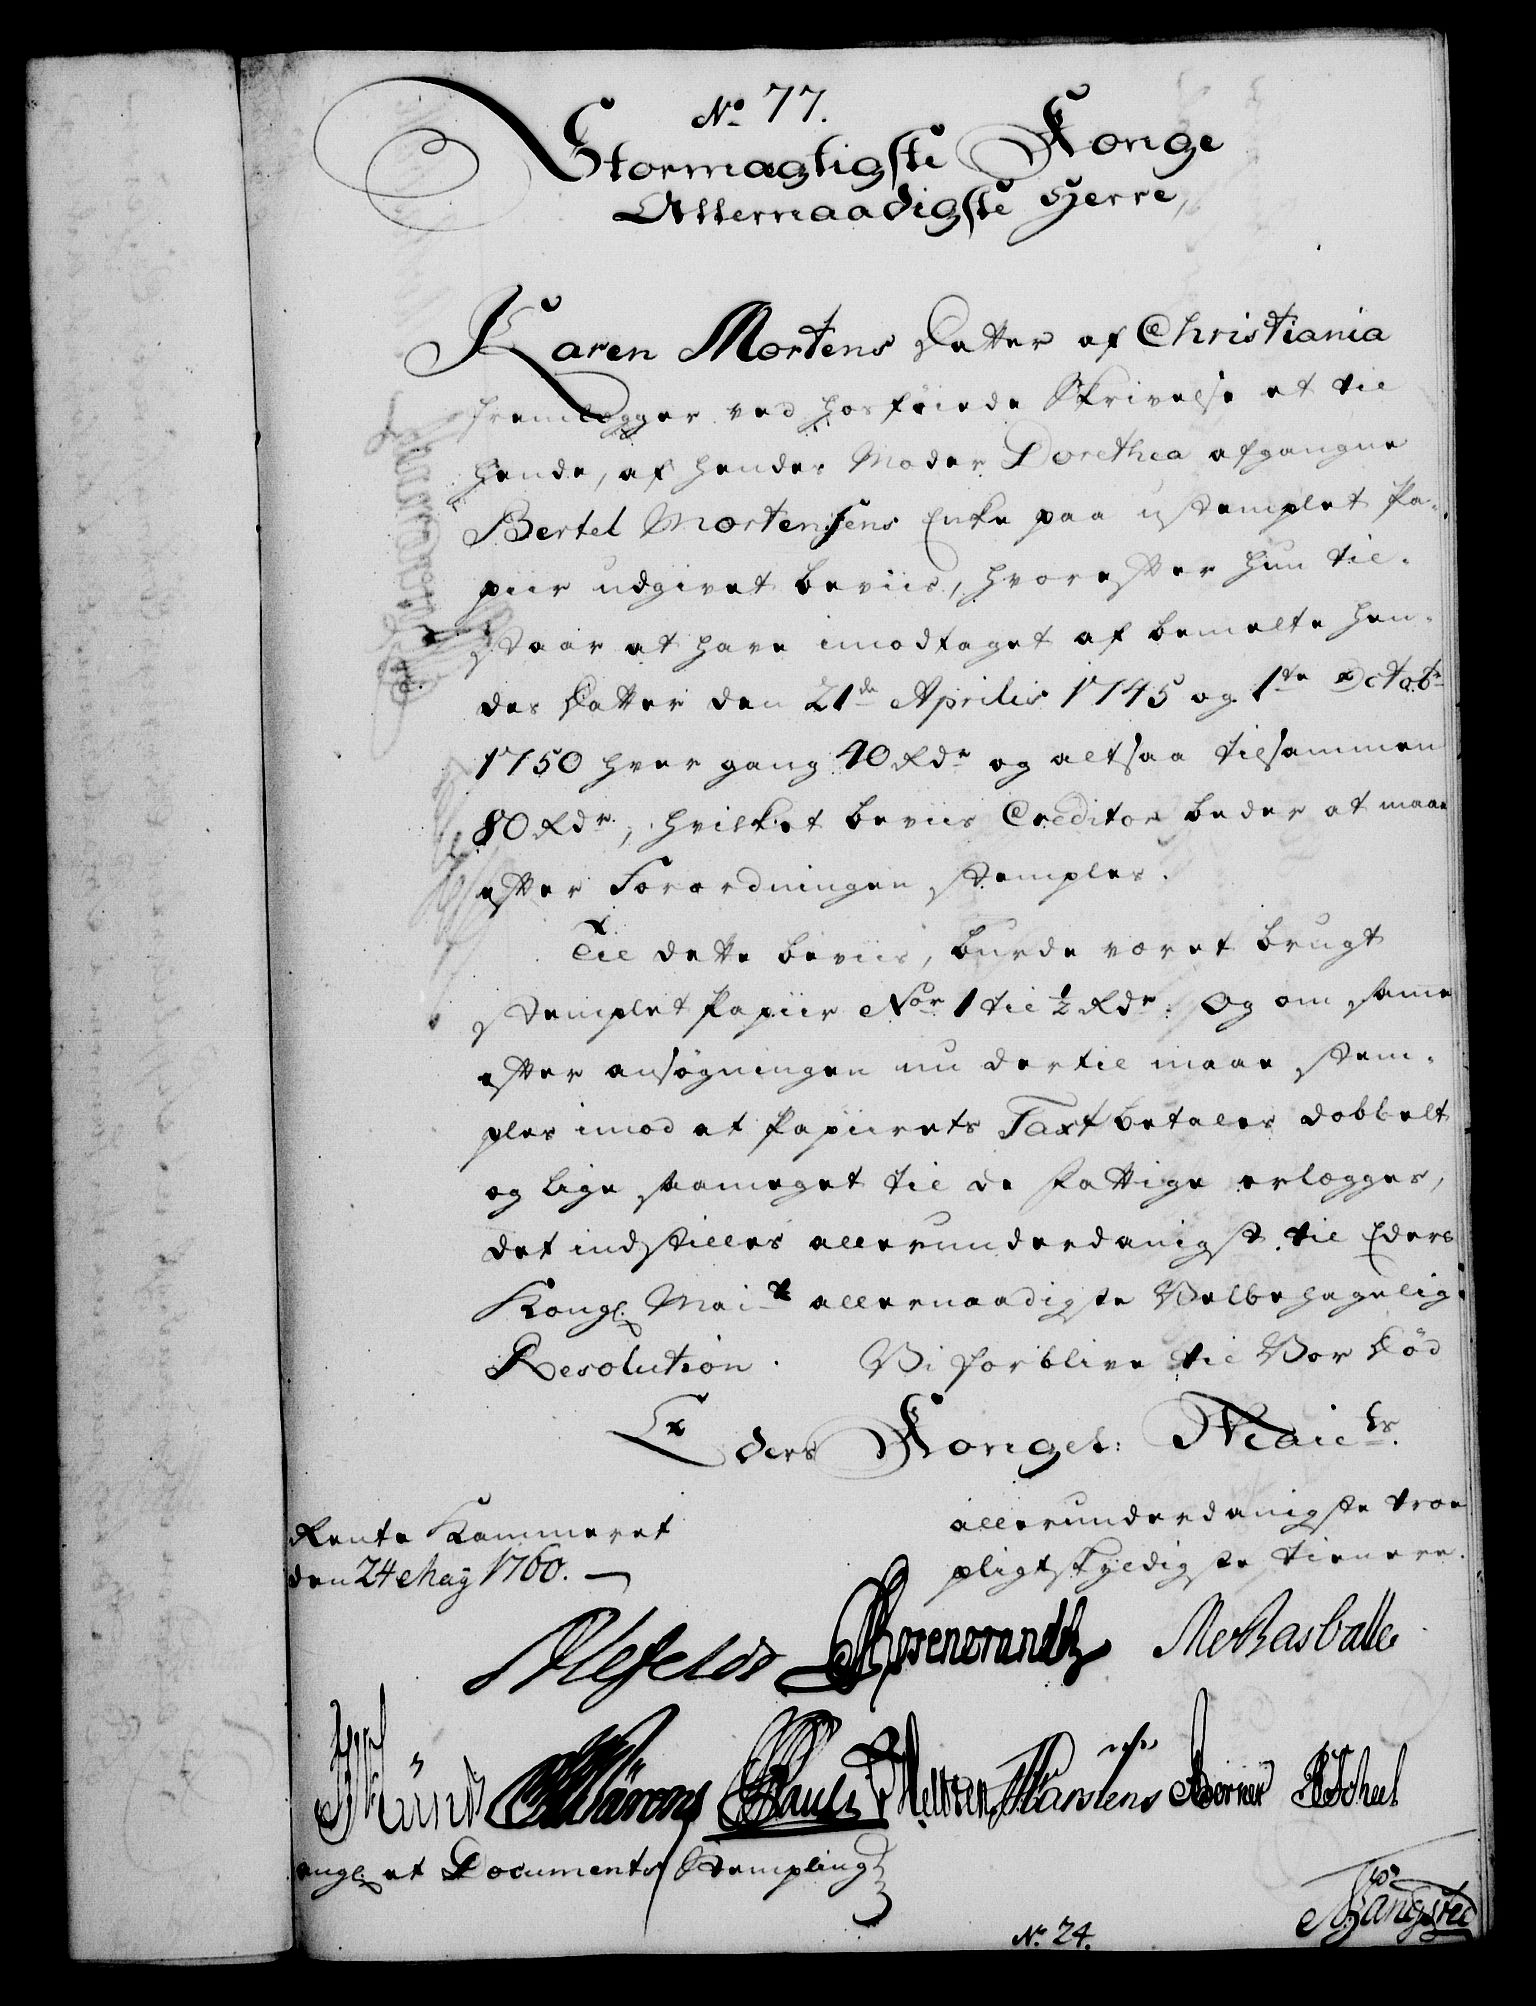 No 77.
Stormægtigste Konge
Allernaadigste Herre,
Karen Mortens Datter af Christiania
fremlegger ved hosføiede Skrivelse et til
hende, af hendes Moder Dorethea afgangne
Bertel Mortensens Enke paa ustemplet Pa-
piir udgivet beviis, hvorefter hun til-
staar at have imodtaget af bemelte hen-
des Datter den 21de Aprilis 1745 og 1te Octobr
1750 hver gang 40 Rdr og altsaa tilsammen
80 Rdr, hvilket beviis Creditor beder at maae
efter Forordningen stemples.
Til dette beviis, burde været brugt
stemplet Papiir Nor 1 til ½ Rdr: Og om same
efter ansøgningen nu dertil maae stem-
ples imod at Papiirets Taxt betales dobbelt
og lige saameget til de fattige erlægges,
det indstilles allerunderdanigst til Eders
Kongl. Mai-ts allernaadigste Velbehagelig
Resolution. Vi forblive til Vor Død
Eders Kongel: Maits.
Rente Kammeret
den 24 May 1760.
allerunderdanigste troe
pligtskyldigste tienere.
Ahlefeldt Rosencrandtz
Pauli Carstens Berner Scheel
angl. et Documents Stempling
No 24.